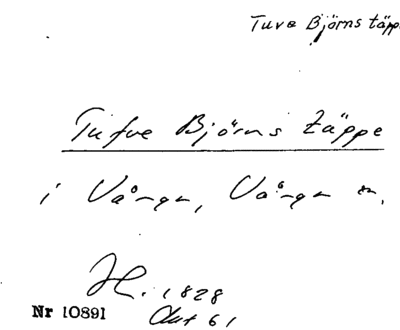 Tuve Björns täpp
Tufve Björns täppe
i Vånga, Vånga sn.
H. 1828
Nr 10891
Akt 61